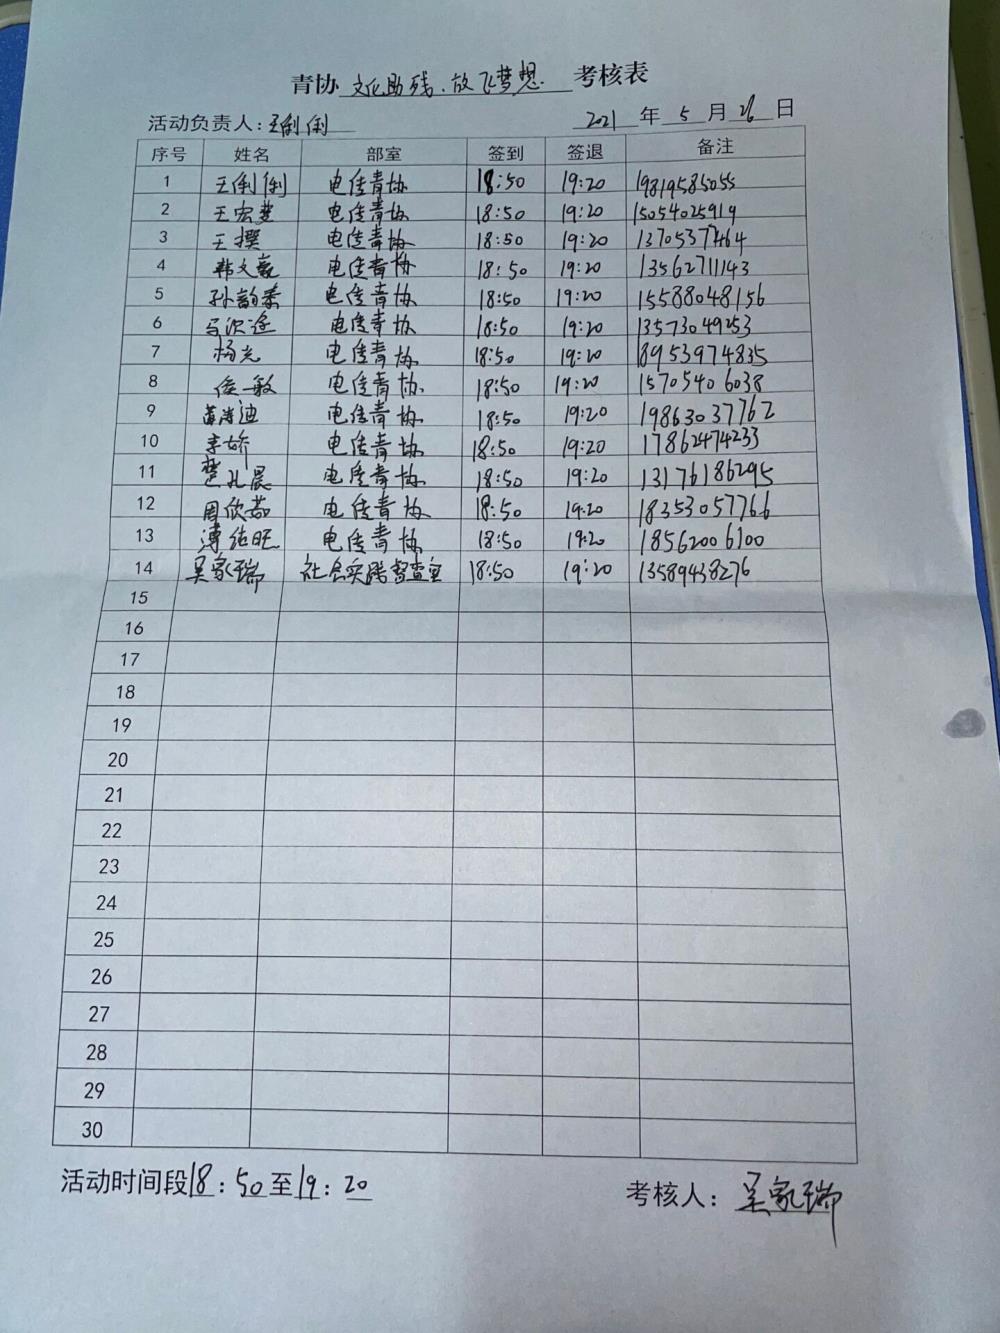 青协 文化助残、放飞梦想 考核表
活动负责人：王俐俐 2021 年 5 月 26 日
序号 姓名 部室 签到 签退 备注
1 王俐俐 电信青协 18:50 19:20 19819585055
2 王宏 电信青协 18:50 19:20 15054025919
3 王撰 电信青协 18:50 19:20 13705377464
4 韩文 电信青协 18:50 19:20 13562711143
5 孙韵 电信青协 18:50 19:20 15588048156
6 电信青协 18:50 19:20 13573049253
7 杨光 电信青协 18:50 19:20 18953974835
8 侯敏 电信青协 18:50 19:20 15705406038
9 电信青协 18:50 19:20 19863037762
10 李娇 电信青协 18:50 19:20 17862474233
11 楚孔晨 电信青协 18:50 19:20 13176186295
12 周欣茹 电信青协 18:50 19:20 18353057766
13 电信青协 18:50 19:20 18562006100
14 吴家瑞 社会实践督查室 18:50 19:20 13589438276
15
16
17
18
19
20
21
22
23
24
25
26
27
28
29
30
活动时间段18：50至19：20 考核人：吴家瑞